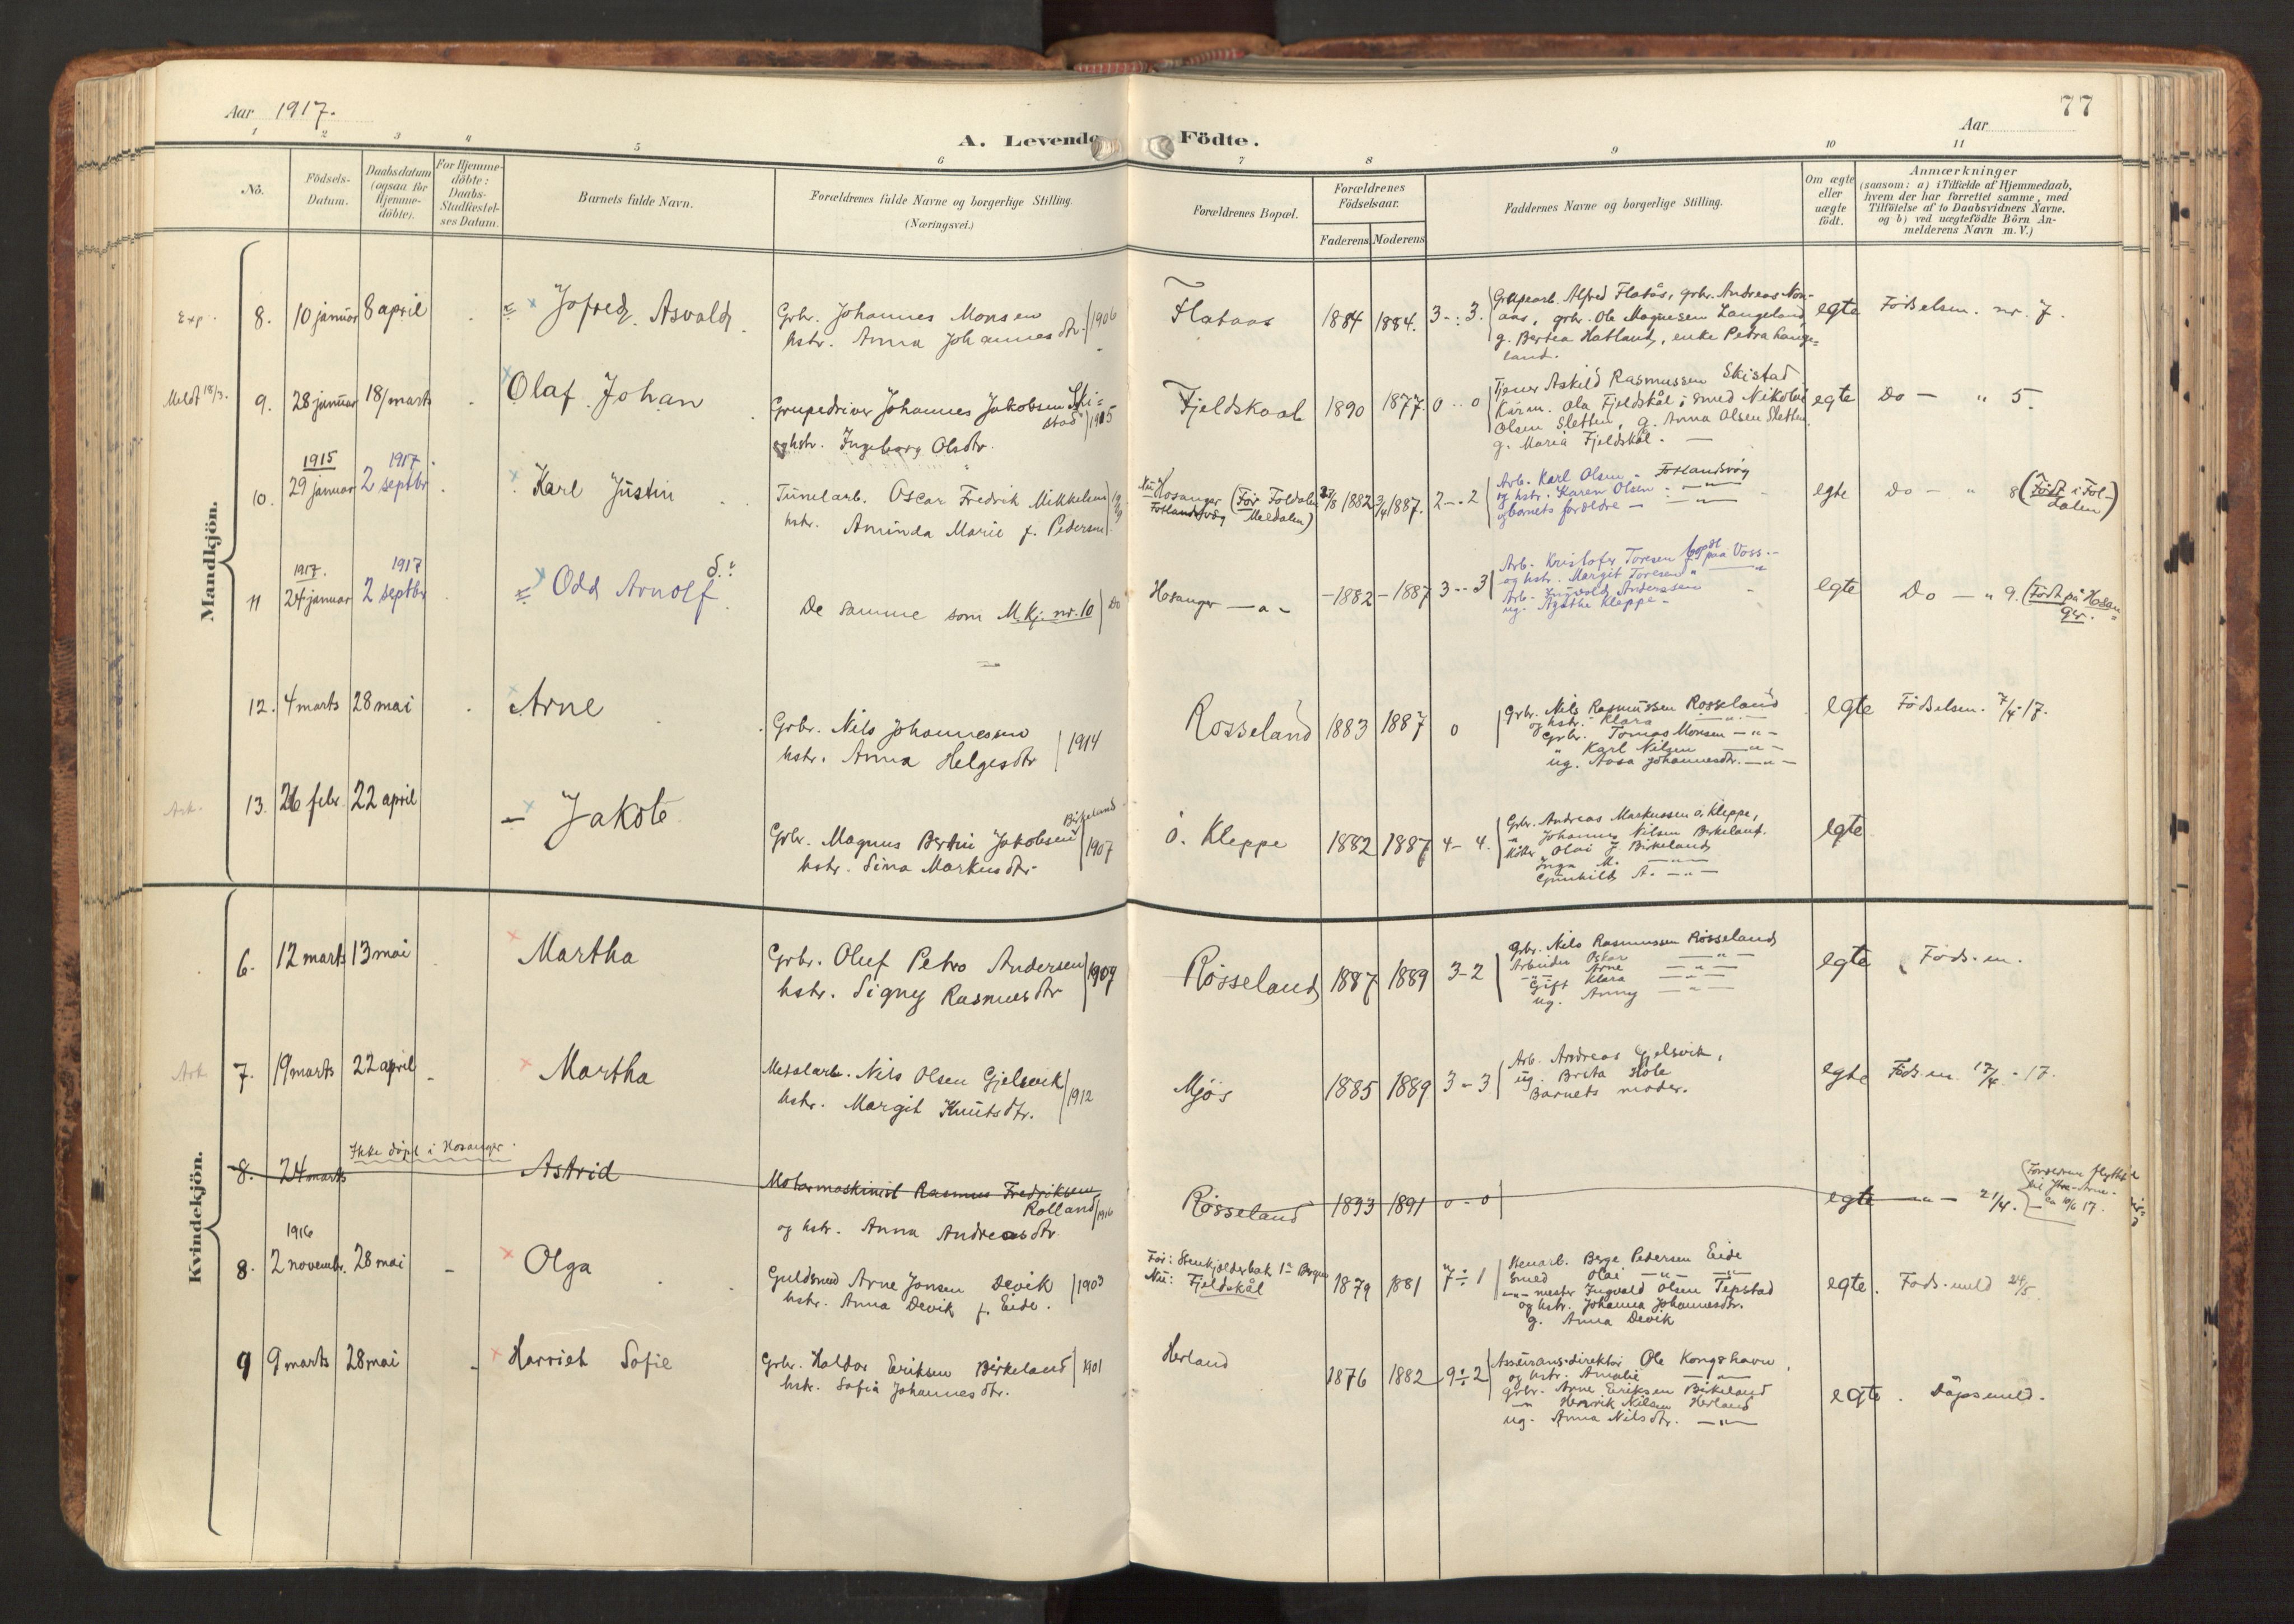 Aar 1917.
77
Aar
A. Levende Födte.
1 2 3 4 5 6 7 8 9 10 11
No.
Födsels-
Datum.
Daabsdatum
(ogsaa for
Hjemme-
döbte).
For Hjemme-
döbte:
Daabs-
Stadfæstel-
ses Datum.
Barnets fulde Navn.
Forældrenes fulde Navne og borgerlige Stilling.
(Næringsvei.)
Forældrenes Bopæl.
Forældrenes
Födselsaar.
Faderens Moderens
Faddernes Navne og borgerlige Stilling.
Om ægte
eller
uægte
födt.
Anmærkninger
(saasom: a) i Tilfælde af Hjemmedaab,
hvem der har forrettet samme, med
Tilföielse af to Daabsvidners Navne.
og b) ved uægtefödte Börn An-
melderens Navn m. V.)
Mandkjön.
Exp. 8. 10 januar 8 april Jofred Asvald
Grbr. Johannes Monsen
hstr. Anna Johannesdtr. 1906
Flataas 1884 1884. 3-:3.
Grubearb. Alfred Flatås, grbr. Andreas Non-
aas, grbr. Ole Magnesen Langeland
g. Bertea Hatland, enke Petra Lange=
land.
egte Födselsm. nr. 7.
Meldt 18/3. 9. 28 januar 18/marts Olaf Johan
Grupedriver Johannes Jakobsen Ski=
stad 1915
og hstr. Ingeborg Olsdtr.
Fjeldskaal 1890 1877. 0..0
Tjener Askild Rasmussen Skistad
Ola Fjeldskål; smed Nikolai
Olsen Sletten, g. Anna Olsen Sletten.
g. Maria Fjeldskål. —
egte Do — " 5.
1915 1917.
10. 29 januar 2 septbr Karl Justin
Tunelarb. Oscar Fredrik Mikkelsen
hstr. Aminda Marie f. Pedersen
Nu Hosanger (Før Foldalen
Fotlandsvåg Meldalen)
1882 1887. 2-.2
Arb. Karl Olsen - Fotlandsvåg
og hstr. Karen Olsen - — " —
og barnets forældre — — " —
egte Do — " 8 (Født i Fol-
dalen)
1917. 1917
11 24 januar 2 septbr Odd Arnolf
De samme som M.Kj. nr. 10 Do
Hosanger — " - -1882 -1887 3--3
Arb. Kristofer Toresen bopæl paa Voss.-
og hstr. Margit Toresen " — " —
Arb. Andersen
ug. Agathe Kleppe -
egte Do — " 9. (Født på Hosan=
ger.
12. 4 marts 28 mai Arne
Grbr. Nils Johannesen
hstr. Anna Helgesdtr 1914
Rosseland 1883 1887 0
Grbr. Nils Rasmussen Rosseland
og hstr. Klara — " —
Grbr. Tomas Monsen — " —
" Karl Nilsen — " —
ug. Aasa Johannesdtr. — " —
egte Födselsm. 7/4-17.
Ark. 13. 26 febr. 22 april Jakob
Birkeland
Grbr. Magnus Bertin Jakobsen 1907
hstr. Sina Markusdtr.
ö. Kleppe 1882 1887 4-4.
Grbr. Andreas Markussen ö. Kleppe,
" Johannes Nilsen Birkeland.
Olai J Birkeland
Inga M. — " —
Gunhild A. — " —
egte
Kvindekjön.
6. 12 marts 13 mai Martha
Grbr. Oluf Petro Andersen 1909
hstr. Signy Rasmusdtr
Rosseland 1887 1889 3-2
Grbr. Nils Rasmussen Rosseland
Arbeider Oskar — " —
— " — Arne — " —
Gift Klara — " —
ug. Anny — " —
egte Føds.m.
Ark 7. 19 marts 22 april Martha
Metalarb. Nils Olsen Gjelsvik
hstr. Margit Knutsdtr. 1912
Mjøs 1885 1889 3-3
Arb. Andreas Gjelsvik,
ug. Brita Hole
Barnets moder.
egte Føds.m. 17/4-17.
Ikke døpt i Hosanger.
8. 24 marts Astrid
Motormaskinist Rasmus Fredriksen
Rolland 1916
og hstr. Anna Andreasdtr.
Rosseland 1893 1891 0-0
egte — " — 21/4.
Forældrene flyttet
til Ytre-Arne.
ca 10/6 17.
1916
8. 2 novembr. 28 mai Olga
Guldsmed Arne Jonsen Devik 1903
hstr. Anna Devik f. Eide.
Før: Stenkjelderbak. Bergen
Nu: Fjeldskål
1879 1881 7÷1
Stenarb. Berge Pedersen Eide
Smed Olai — " — — " —
— " — mester Ingvald Olsen Tepstad
og hstr. Johanna Johannesdtr.
g. Anna Devik
egte. Føds.meld 24/5.
9 9 marts 28 mai Harriet Sofie
Grbr. Haldor Eriksen Birkeland 1901
hstr. Sofia Johannesdtr.
Herland 1876 1882 9÷2
Assuransedirektör Ole Kongshavn,
og hstr. Amalie — " —
grbr. Arne Eriksen Birkeland
— " Henrik Nilsen Herland
ug. Anna Nilsdtr. — " —
egte. Dåpsmeld.